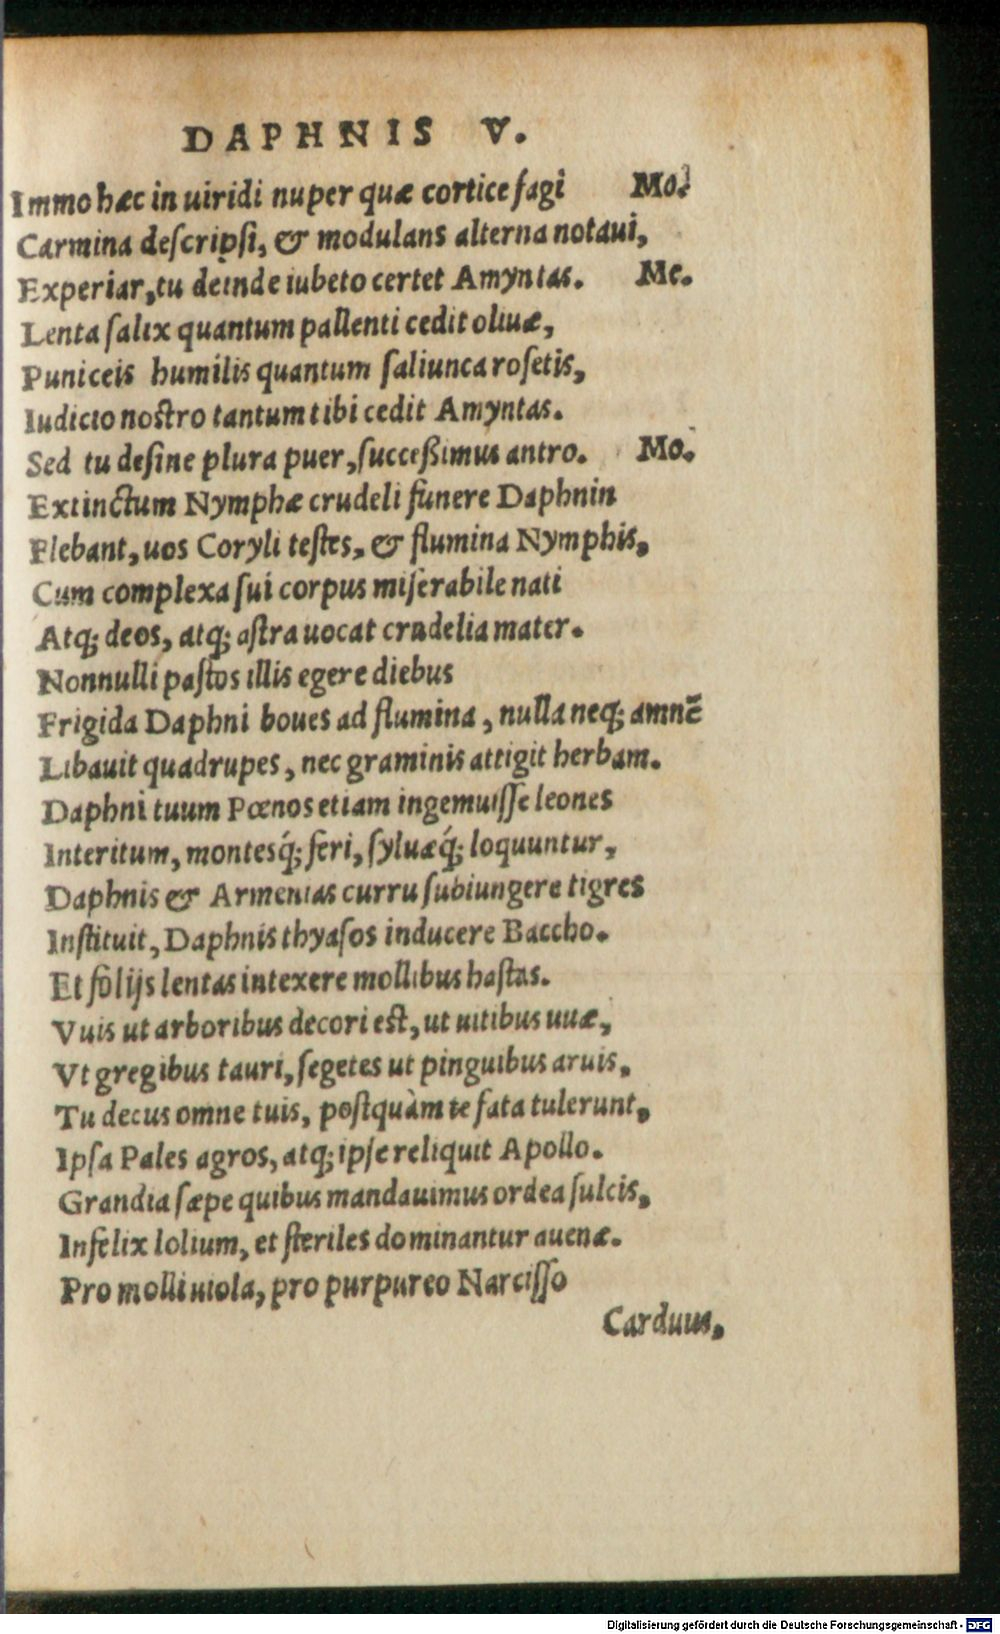 DAPHNIS V.
Immo hæc in uiridi nuper quæ cortice fagi Mo.
Carmina descripsi, & modulans alterna notaui,
Experiar, tu deinde iubeto certet Amyntas. Me.
Lenta salix quantum pallenti cedit oliuæ,
Puniceis humilis quantum saliunca rosetis,
Iudicio nostro tantum tibi cedit Amyntas.
Sed tu desine plura puer, succeßimus antro. Mo.
Extinctum Nymphæ crudeli funere Daphnin
Flebant, uos Coryli testes, & flumina Nymphis,
Cum complexa sui corpus miserabile nati
Atq; deos, atq; astra uocat crudelia mater.
Nonnulli pastos illis egere diebus
Frigida Daphni boues ad flumina, nulla neq; amnē
Libauit quadrupes, nec graminis attigit herbam.
Daphni tuum Pœnos etiam ingemuisse leones
Interitum, montesq́; feri, syluæq́; loquuntur,
Daphnis & Armenias curru subiungere tigres
Instituit, Daphnis thyasos inducere Baccho.
Et folijs lentas intexere mollibus hastas.
Vuis ut arboribus decori est, ut uitibus uuæ,
Vt gregibus tauri, segetes ut pinguibus aruis,
Tu decus omne tuis, postquàm te fata tulerunt,
Ipsa Pales agros, atq; ipse reliquit Apollo.
Grandia sæpe quibus mandauimus ordea sulcis,
Infelix lolium, et steriles dominantur auenæ.
Pro molli uiola, pro purpureo Narcisso
Carduus,
Digitalisierung gefördert durch die Deutsche Forschungsgemeinschaft - DFG